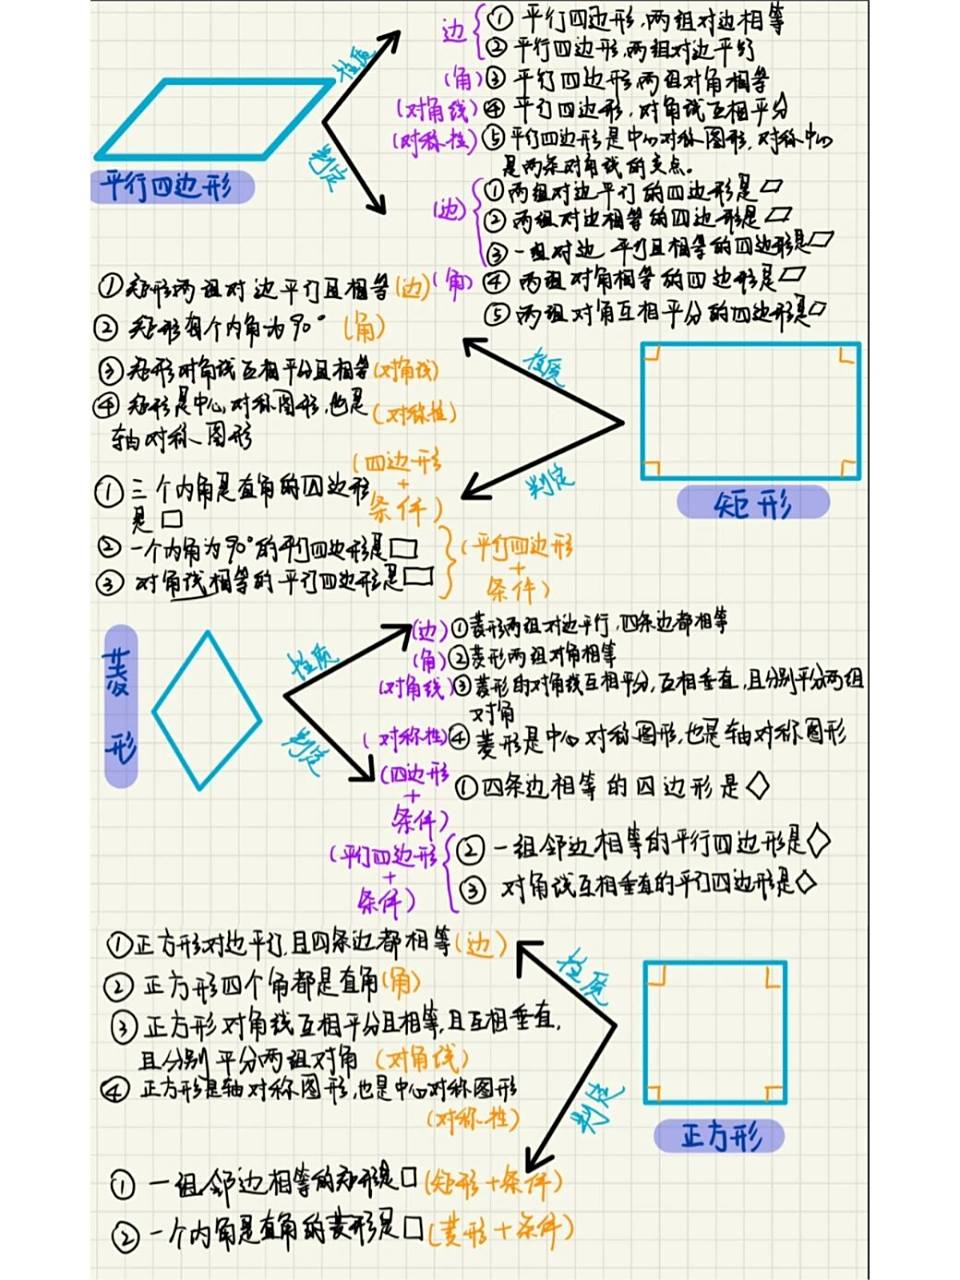 边
① 平行四边形,两组对边相等
② 平行四边形,两组对边平行
(角)③ 平行四边形,两组对角相等
(对角线)④ 平行四边形,对角线互相平分
(对称性)⑤ 平行四边形是中心对称图形,对称中心
是两条对角线的交点。
性质
判定
平行四边形
(边)
① 两组对边平行的四边形是▱
② 两组对边相等的四边形是▱
③ 一组对边平行且相等的四边形是▱
(角)④ 两组对角相等的四边形是▱
⑤ 两组对角互相平分的四边形是▱
① 矩形两组对边平行且相等(边)
② 矩形每个内角为90°(角)
③ 矩形对角线互相平分且相等(对角线)
④ 矩形是中心对称图形,也是(对称性)
轴对称图形
性质
判定
矩形
① 三个内角是直角的四边形
是□
(四边形
+
条件)
② 一个内角为90°的平行四边形是▭
③ 对角线相等的平行四边形是▭
(平行四边形
+
条件)
菱形
性质
判定
(边)① 菱形两组对边平行,四条边都相等
(角)② 菱形两组对角相等
(对角线)③ 菱形的对角线互相平分,互相垂直,且分别平分两组
对角
(对称性)④ 菱形是中心对称图形,也是轴对称图形
(四边形
+
条件)
① 四条边相等的四边形是◇
(平行四边形
+
条件)
② 一组邻边相等的平行四边形是◇
③ 对角线互相垂直的平行四边形是◇
① 正方形对边平行,且四条边都相等(边)
② 正方形四个角都是直角(角)
③ 正方形对角线互相平分且相等,且互相垂直,
且分别平分两组对角(对角线)
④ 正方形是轴对称图形,也是中心对称图形
(对称性)
性质
判定
正方形
① 一组邻边相等的矩形是□(矩形+条件)
② 一个内角是直角的菱形是□(菱形+条件)